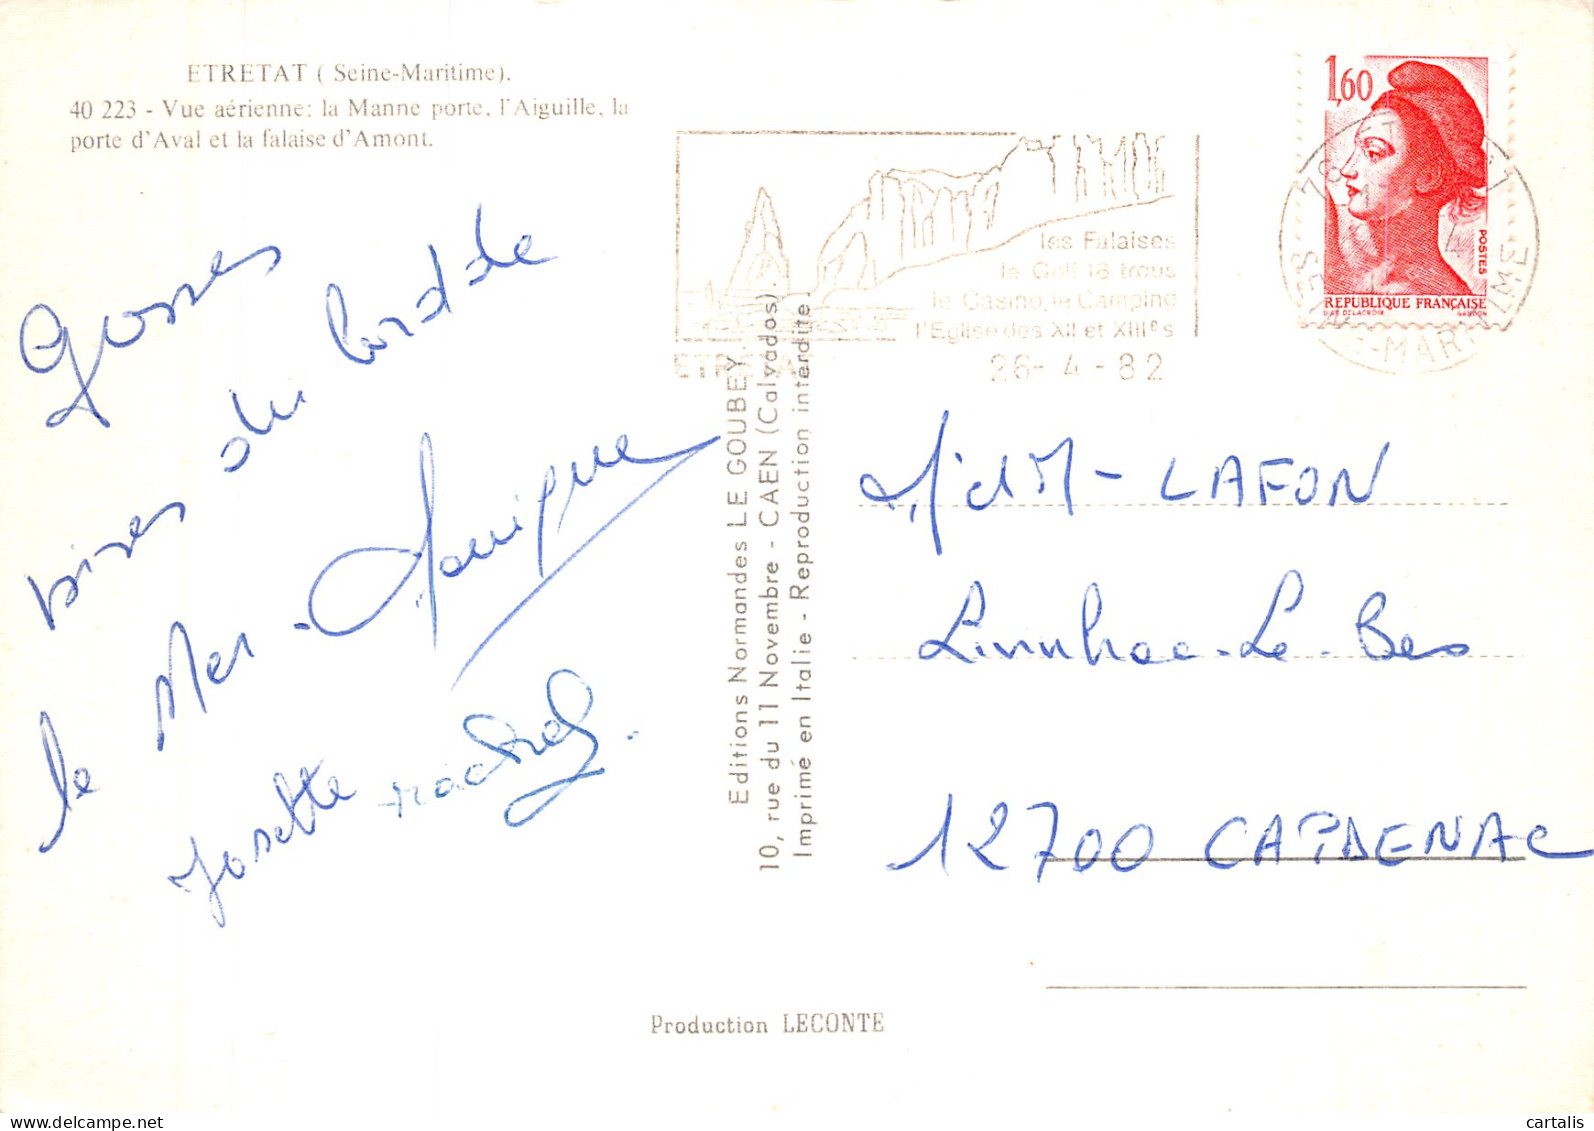 ETRETAT ( Seine-Maritime).
40 223 - Vue aérienne: la Manne porte, l'Aiguille, la
porte d'Aval et la falaise d'Amont.
Grosses
bises du bord de
le Mer - Monique
Josette
Editions Normandes LE GOUBEY
10, rue du 11 Novembre - CAEN (Calvados).
Imprimé en Italie - Reproduction interdite.
les Falaises
le Golf 18 trous
le Casino, le Camping
l'Eglise des XII et XIIIes
ETRETAT
26- 4 - 82
1,60
POSTES
REPUBLIQUE FRANÇAISE
D'AP. DELACROIX GANDON
SEINE-MARITIME
M. et M - LAFON
Livinhac-Le-Bas
12700 CAPDENAC
Production LECONTE
cartalis